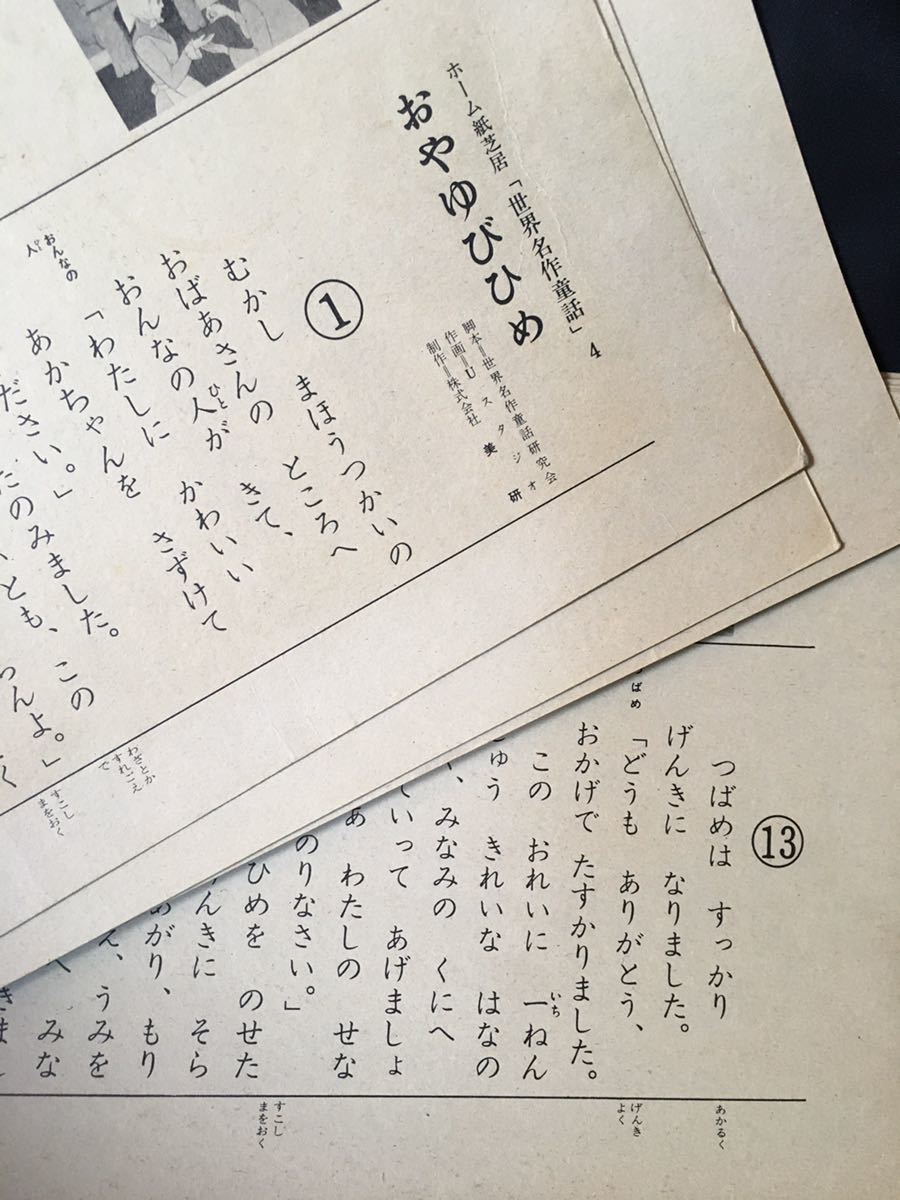 ホーム紙芝居「世界名作童話」4
おやゆびひめ
脚本＝世界名作童話研究会
作画＝Uスタジオ
制作＝株式会社 美研
①
むかし まほうつかいの
おばあさんの ところへ
おんなの人が きて、
ひと
おんなの人
「わたしに かわいい
あかちゃんを さずけて
ください。」
みました。この
とも、
んよ。」
わざとか
すれごえ
で
すこし
まをおく
⑬
つばめは すっかり
げんきに なりました。
つばめ
「どうも ありがとう、
おかげで たすかりました。
この おれいに 一ねん
いち
じゅう きれいな はなの
みなみの くにへ
ていって あげましょ
あ わたしの せな
のりなさい。」
ひめを のせた
んきに そら
あがり、もり
え、うみを
へ みな
あかるく
げんき
よく
すこし
まをおく